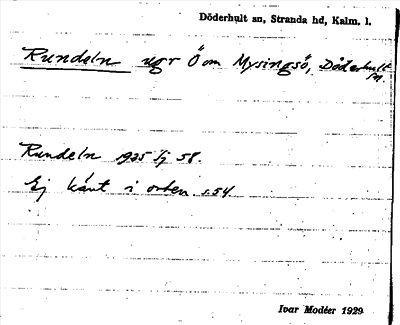 Döderhult sn, Stranda hd, Kalm. l.
Rundeln ugr Ö om Mysingsö, Döderhult sn.
Rundeln 1925 sj 58.
Ej känt i orten s. 54
Ivar Modéer 1929